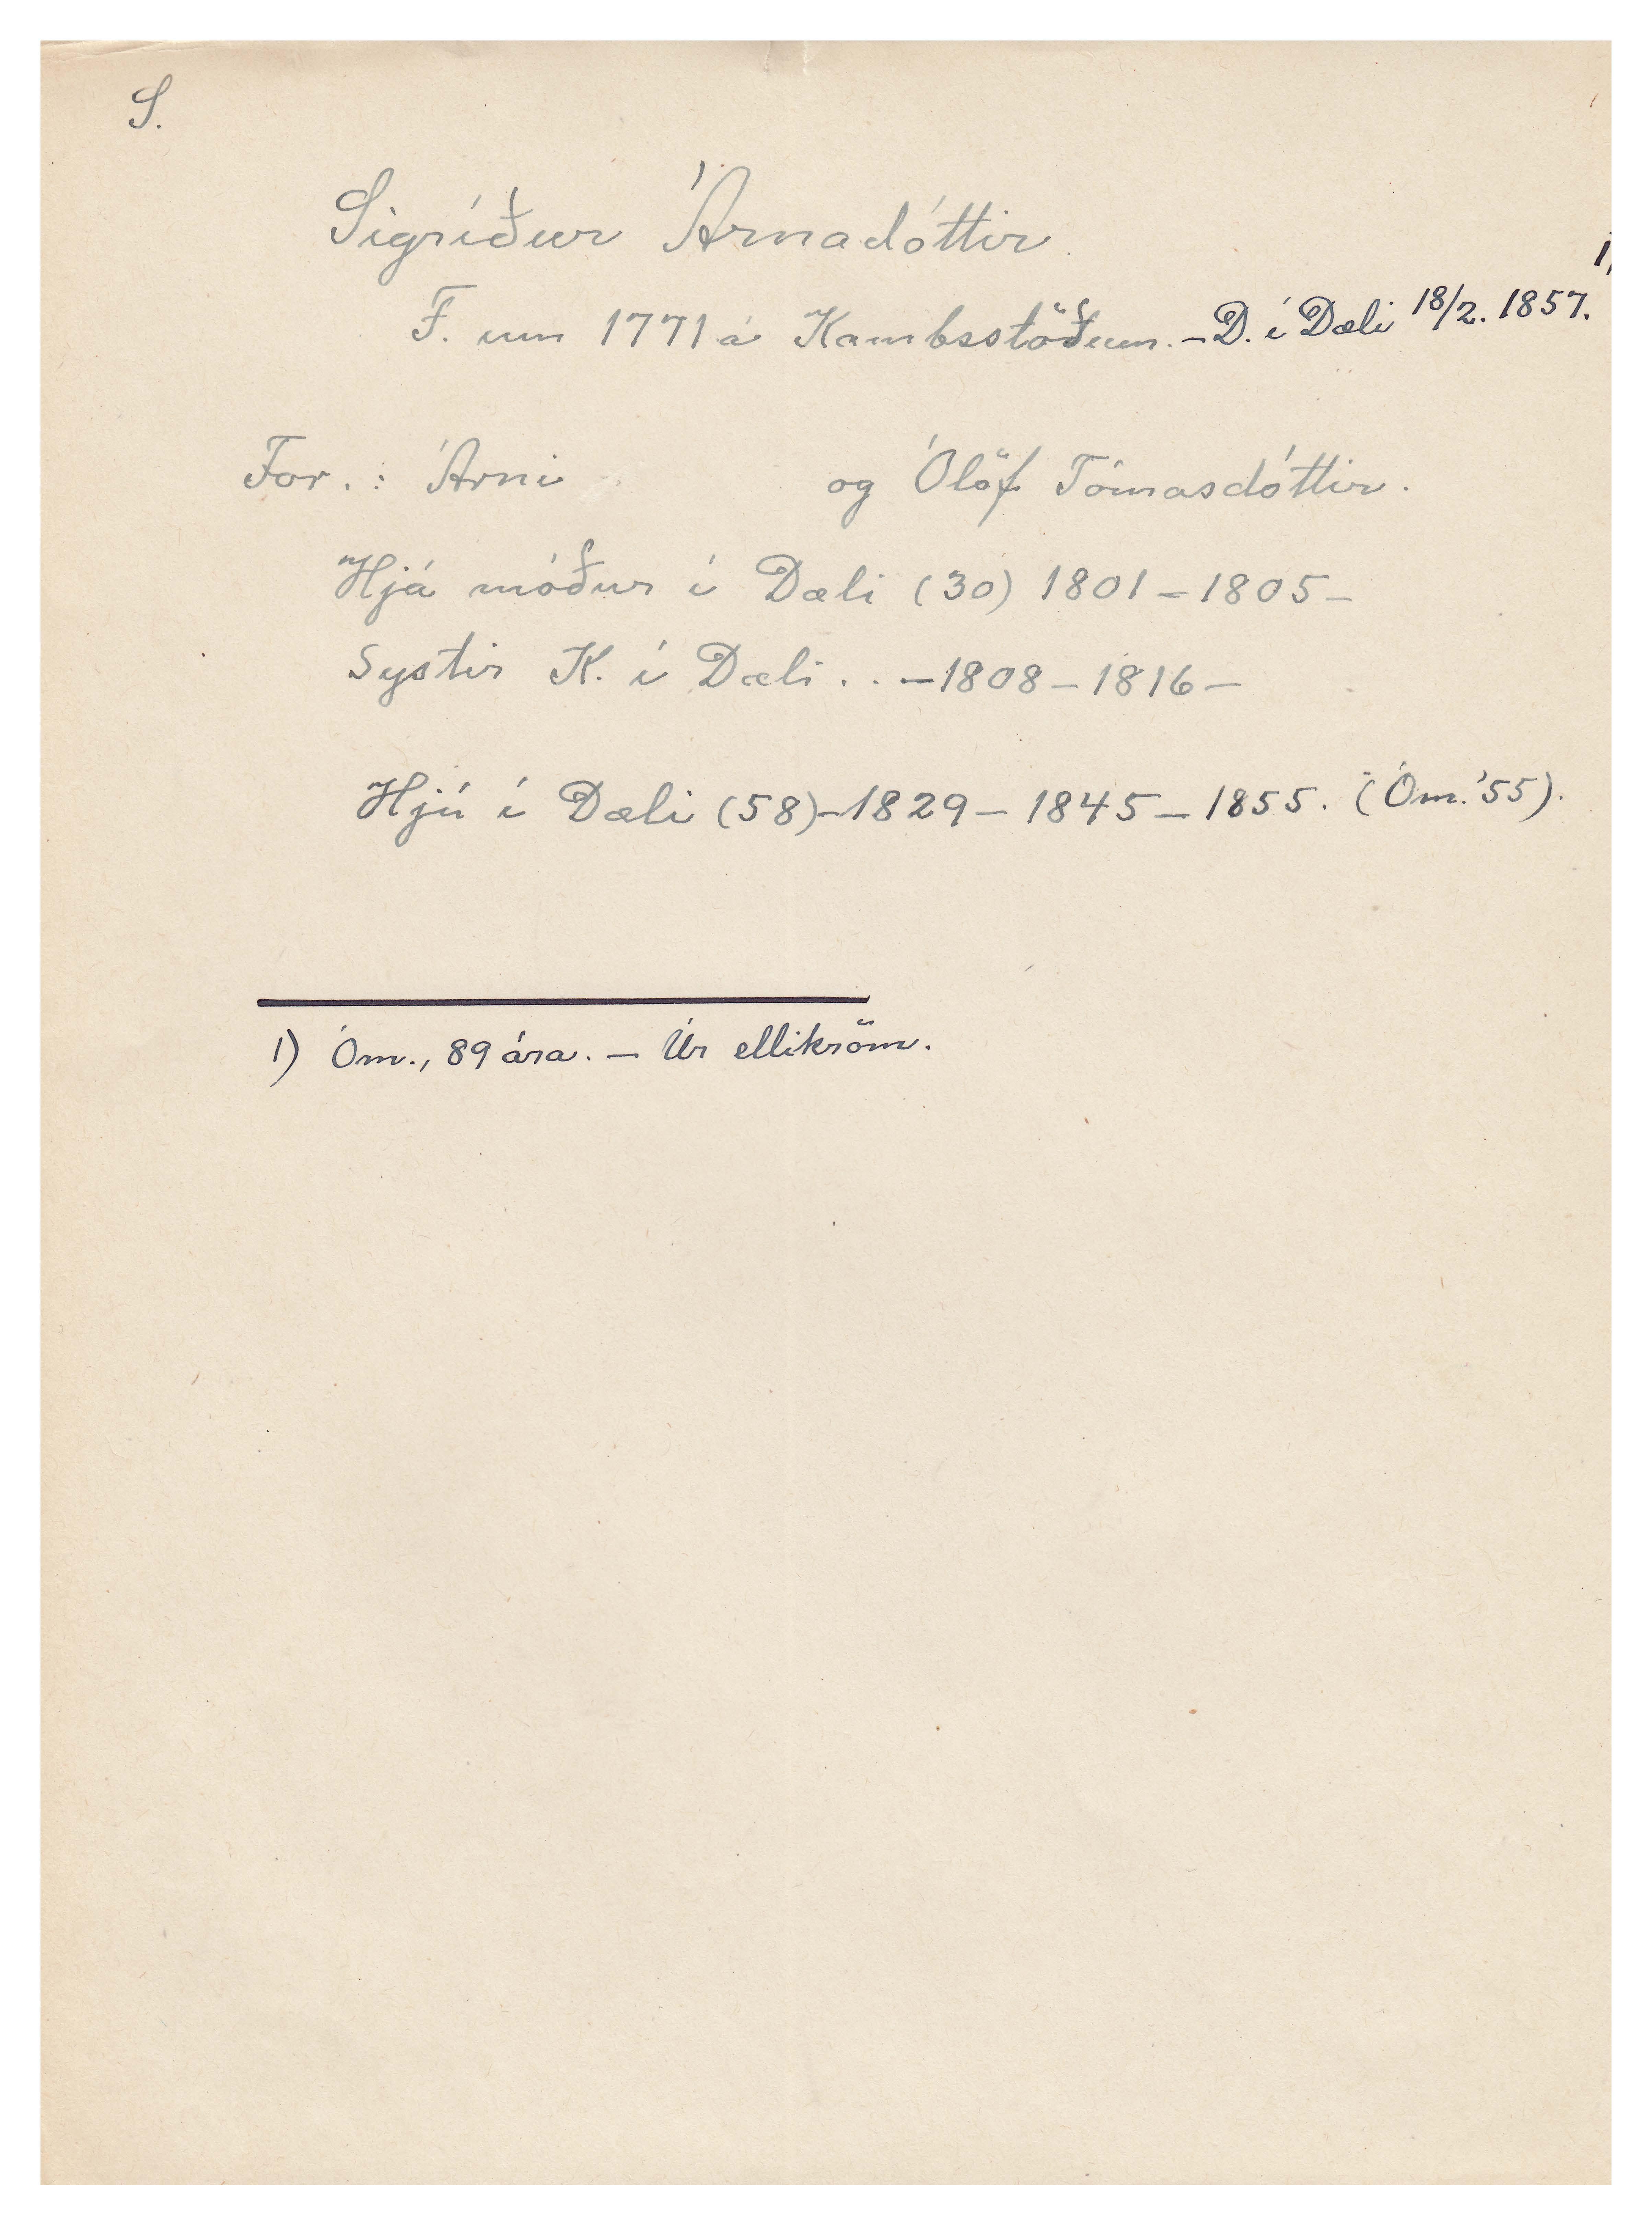 S.
Sigríður Árnadóttir.
F. um 1771 á Kambsstöðum. – D. í Dæli 18/2. 1857. 1)
For. : Árni og Ólöf Tómasdóttir.
Hjá móður í Dæli (30) 1801 – 1805 –
Systir K. í Dæli . . – 1808 – 1816 –
Hjú í Dæli (58) – 1829 – 1845 – 1855. (Óm. '55).
1) Óm., 89 ára. – Úr ellikröm.